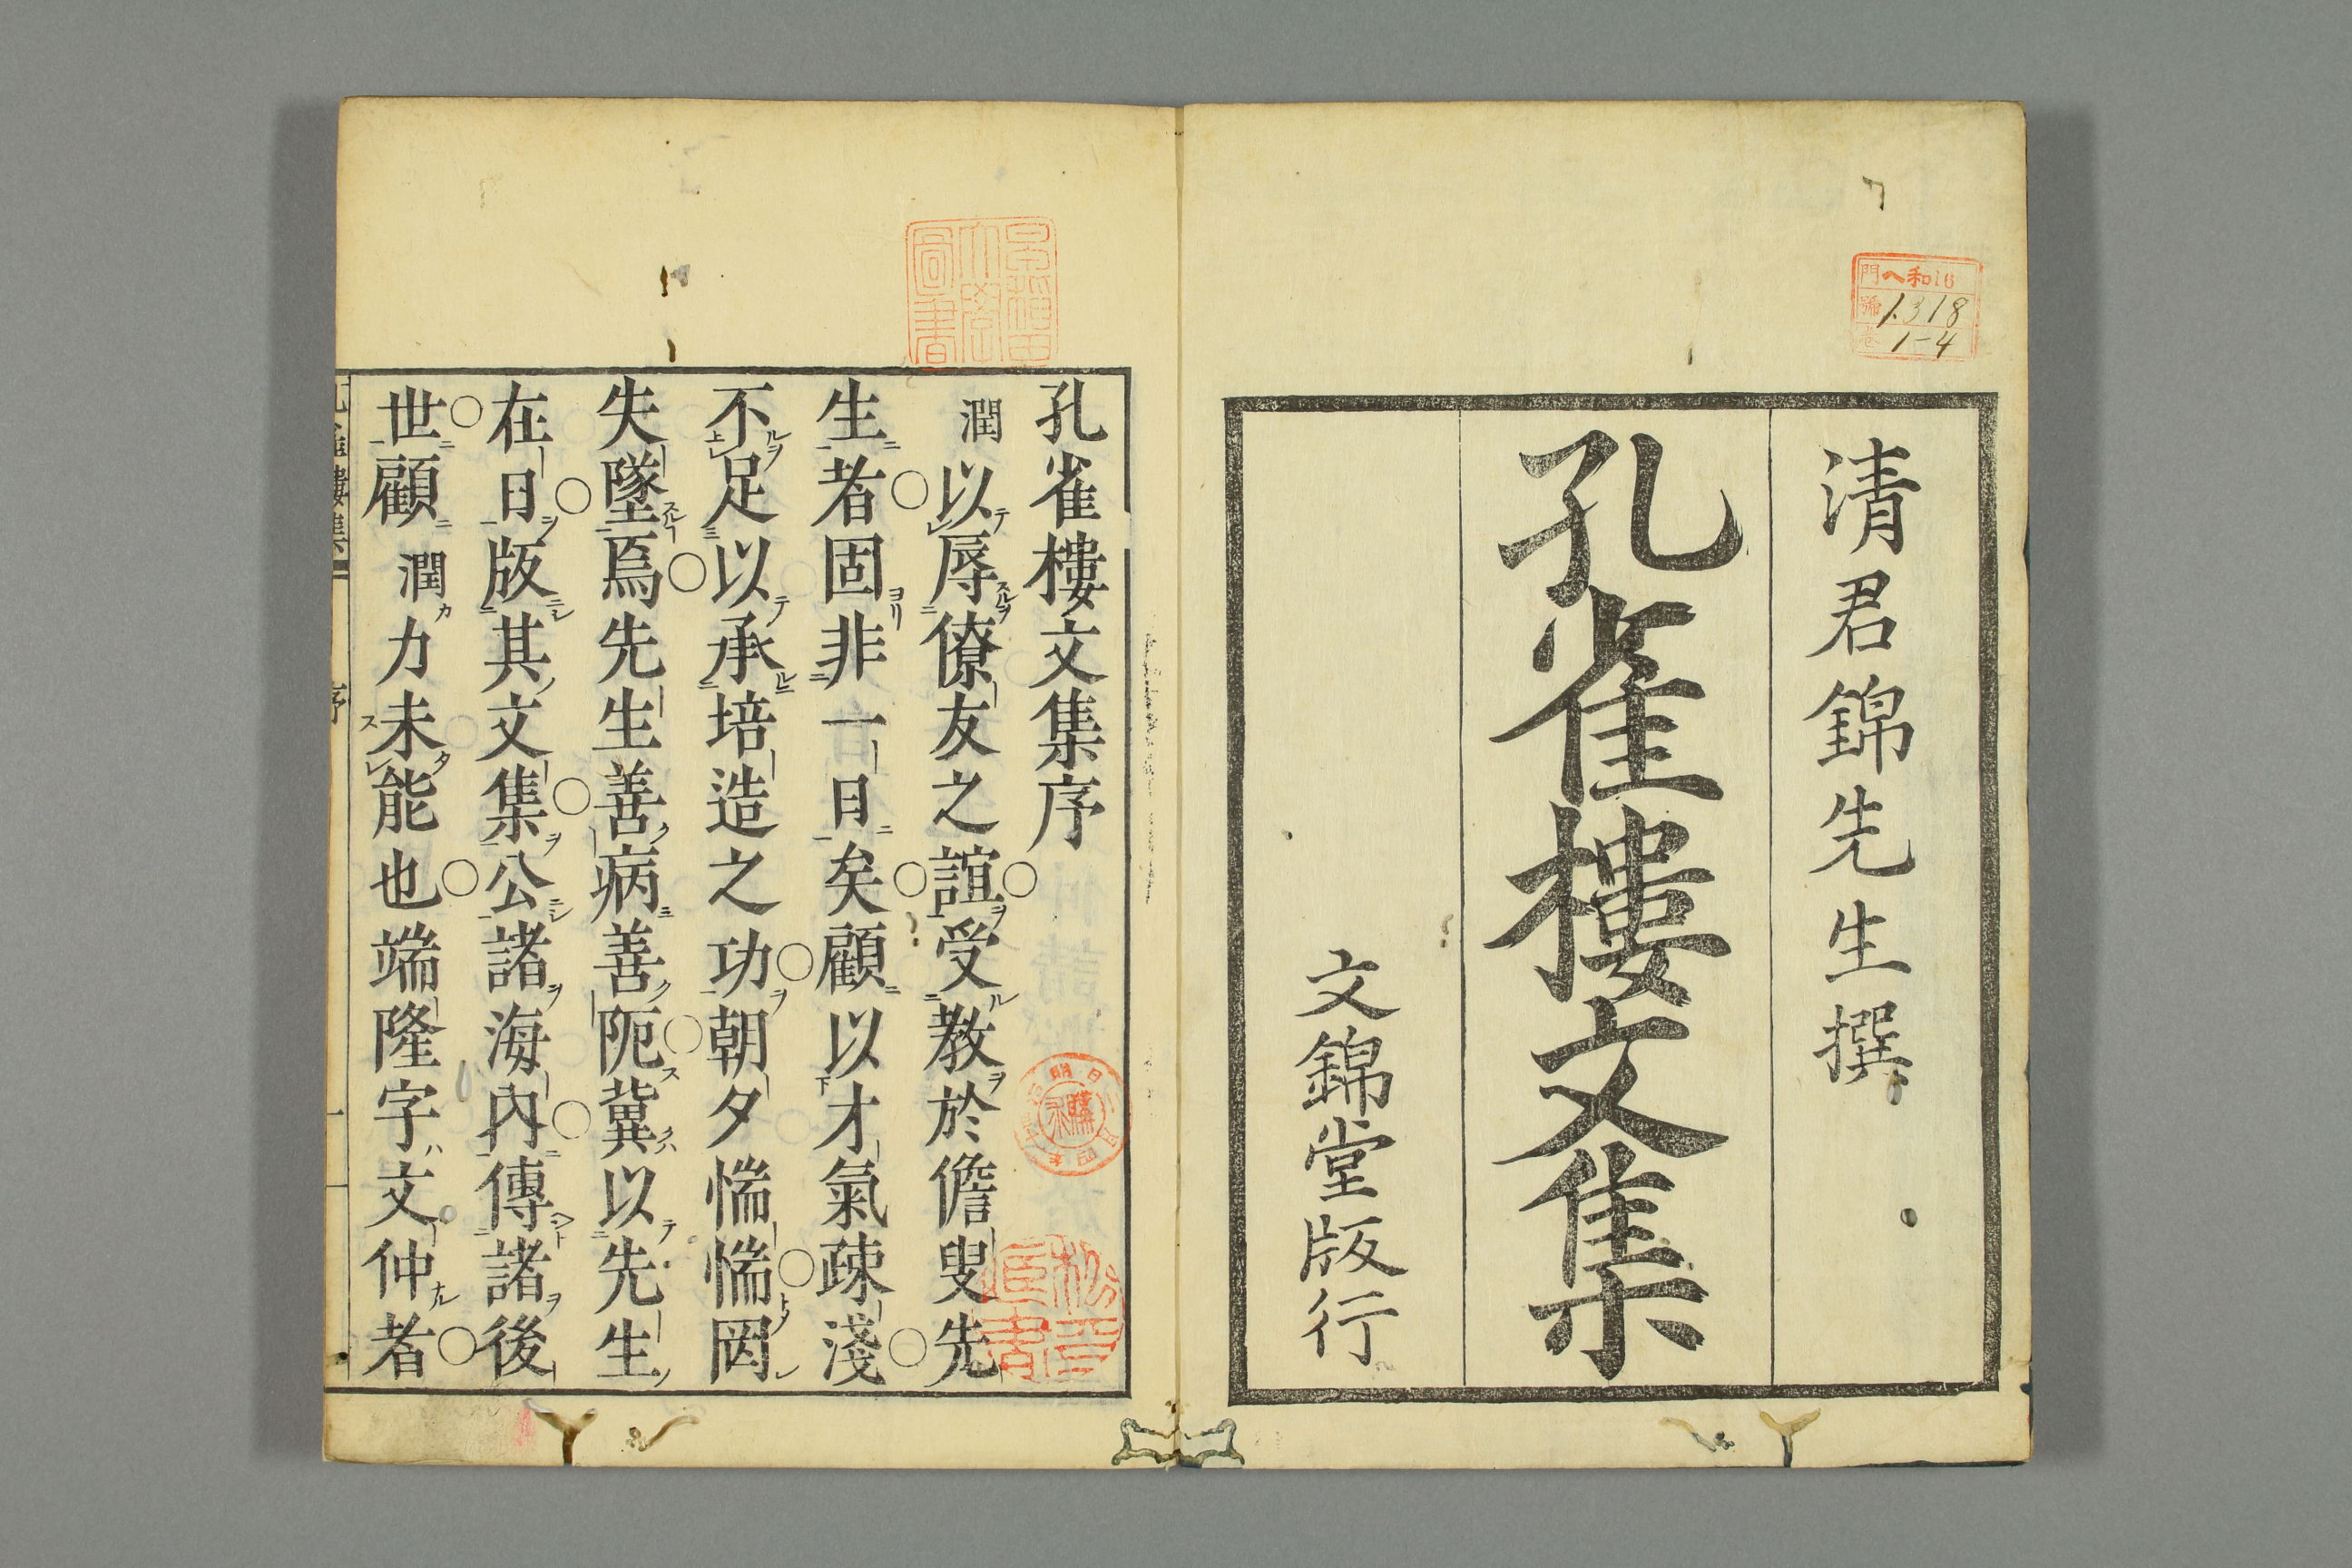 清君錦先生撰
孔雀樓文集
文錦堂版行
門 ヘ和16
號 1318
卷 1-4
早稲田大學圖書
孔雀樓文集序
潤以辱僚友之誼受教於儋叟先
生者固非一日矣顧以才氣疎淺
不足以承培造之功朝夕惴惴罔
失墜焉先生善病善阨冀以先生
在日版其文集公諸海內傳諸後
世顧潤力未能也端隆字文仲者
孔雀樓集
序
一